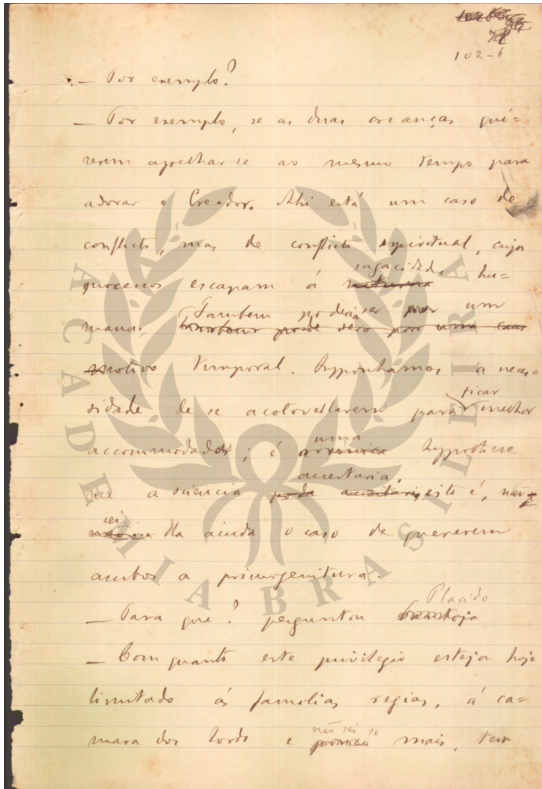 102-6
— Por exemplo?
— Por exemplo, se as duas creanças qui-
zerem ajoelhar-se ao mesmo tempo para
adorar o Creador. Ahi está um caso de
conflicto, mas de conflicto espiritual, cujos
processos escapam á sagacidade hu-
mana. Tambem poderia ser um
motivo temporal. Supponhamos a neces-
sidade de se acotovellarem para ficar melhor
accommodados; é uma hypothese
que a sciencia acceitaria, isto é, não
sei. Ha ainda o caso de quererem
ambos a primogenitura.
— Para que? perguntou Placido
— Comquanto este privilegio esteja hoje
limitado ás familias regias, á ca-
mara dos lords e não sei se mais, tem
ACADEMIA BRASILEIRA